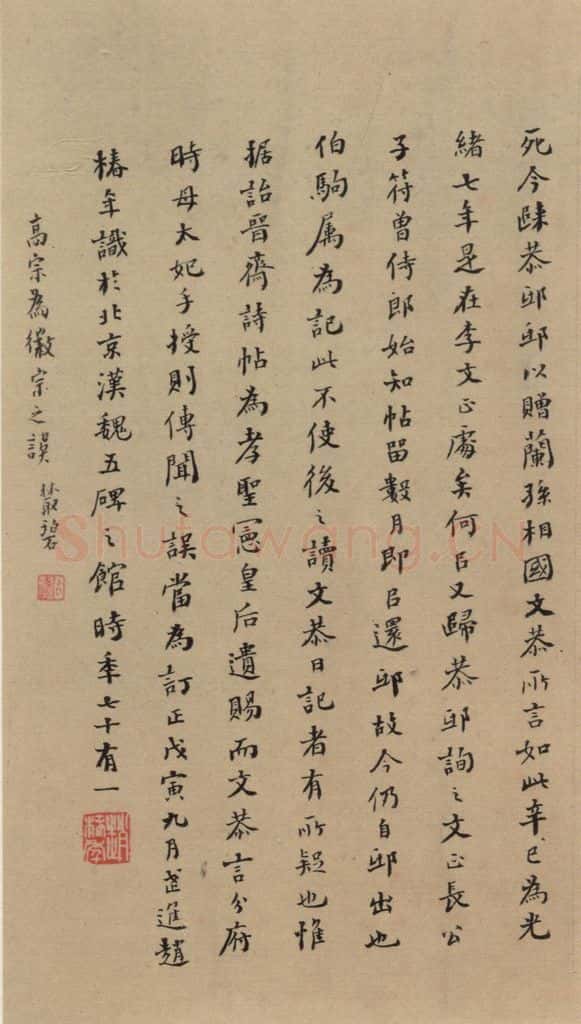 死今歸恭邸邸以贈蘭孫相國文恭所言如此辛巳為光
緒七年是在李文正處矣何㠯又歸恭邸詢之文正長公
子符曾侍郎始知帖留數月即㠯還邸故今仍自邸出也
伯駒属為記此不使後之讀文恭日記者有所疑也惟
据詒晉齋詩帖為孝聖憲皇后遺賜而文恭言分府
時母太妃手授則傳聞之誤當為訂正戊寅九月武進趙
椿年識於北京漢魏五碑之館時年七十有一
趙椿年
高宗為徽宗之誤
Shufawang.CN